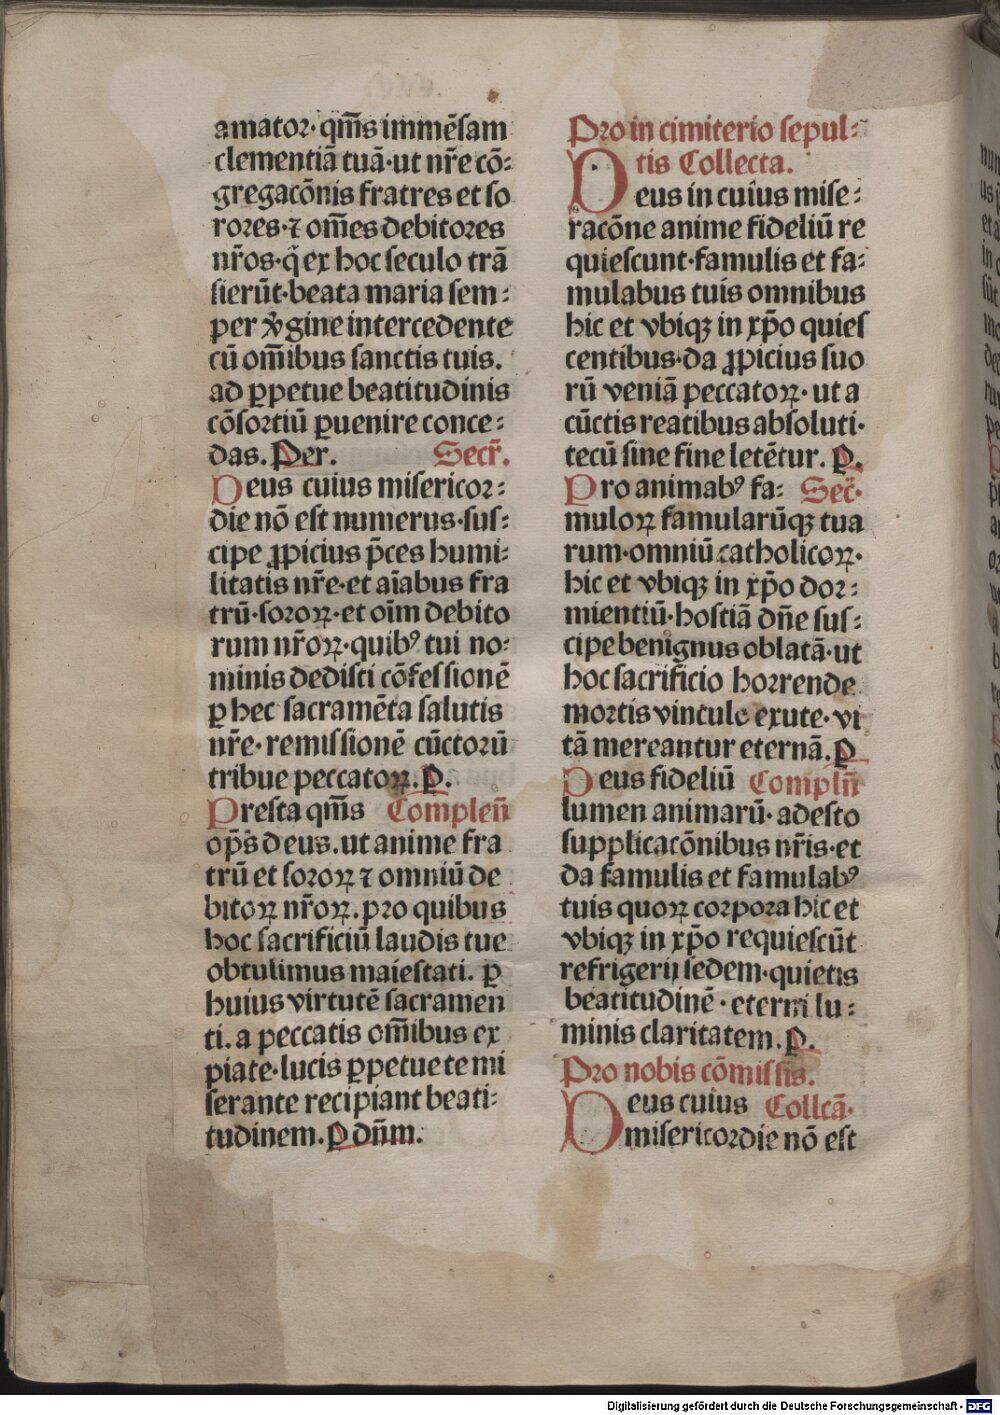 amatoꝛ· qm̄s immēſam
clementiā tuā·ut nr̄e cō⸗
gregacōnis fratres et ſo
roꝛes·⁊ om̄es debitoꝛes
nr̄os·q̄ ex hoc ſeculo trā
ſierūt·beata maria ſem⸗
per v̓gine intercedente
cū om̄ibus ſanctis tuis.
ad ꝑpetue beatitudinis
cōſoꝛtiū ꝑuenire conce⸗
das. Per. Secr̄.
Deus cuius miſericoꝛ⸗
die nō eſt numerus·ſuſ⸗
cipe ꝓpicius p̄ces humi⸗
litatis nr̄e·et aīabus fra
trū·ſoꝛoꝝ·et oīm debito
rum nr̄oꝝ·quibꝰ tui no⸗
minis dediſti cōfeſſionē
ꝑ hec ſacramēta ſalutis
nr̄e·remiſſionē cūctoꝛū
tribue peccatoꝝ. P.
Preſta qm̄s Complen̄
op̄s deus. ut anime fra
trū et ſoꝛoꝝ ⁊ omniū de
bitoꝝ nr̄oꝝ. pꝛo quibus
hoc ſacrificiū laudis tue
obtulimus maieſtati. ꝑ
huius virtutē ſacramen
ti. a peccatis om̄ibus ex
piate·lucis ꝑpetue te mi
ſerante recipiant beati⸗
tudinem. P dn̄m.
Pꝛo in cimiterio ſepul⸗
tis Collecta.
Deus in cuius miſe⸗
racōne anime fideliū re
quieſcunt·famulis et fa⸗
mulabus tuis omnibus
hic et vbiqꝫ in xp̄o quieſ
centibus·da ꝓpicius ſuo
rū veniā peccatoꝝ·ut a
cūctis reatibus abſoluti·
tecū ſine fine letētur. P.
Pro animabꝰ fa⸗ Secr̄·
muloꝝ famularūqꝫ tua
rum·omniū catholicoꝝ·
hic et vbiqꝫ in xp̄o doꝛ⸗
mientiū·hoſtiā dn̄e ſuſ⸗
cipe benignus oblatā·ut
hoc ſacrificio hoꝛrende
moꝛtis vinculo exute·vi
tā mereantur eternā. P
Deus fideliū Compln̄
lumen animarū·adeſto
ſupplicacōnibus nr̄is·et
da famulis et famulabꝰ
tuis quoꝝ coꝛpoꝛa hic et
vbiqꝫ in xp̄o requieſcūt
refrigerij ſedem·quietis
beatitudinē·eterni lu⸗
minis claritatem. P.
Pꝛo nobis cōmiſſis.
Deus cuius Collcā·
miſericoꝛdie nō eſt
Digitalisierung gefördert durch die Deutsche Forschungsgemeinschaft - DFG